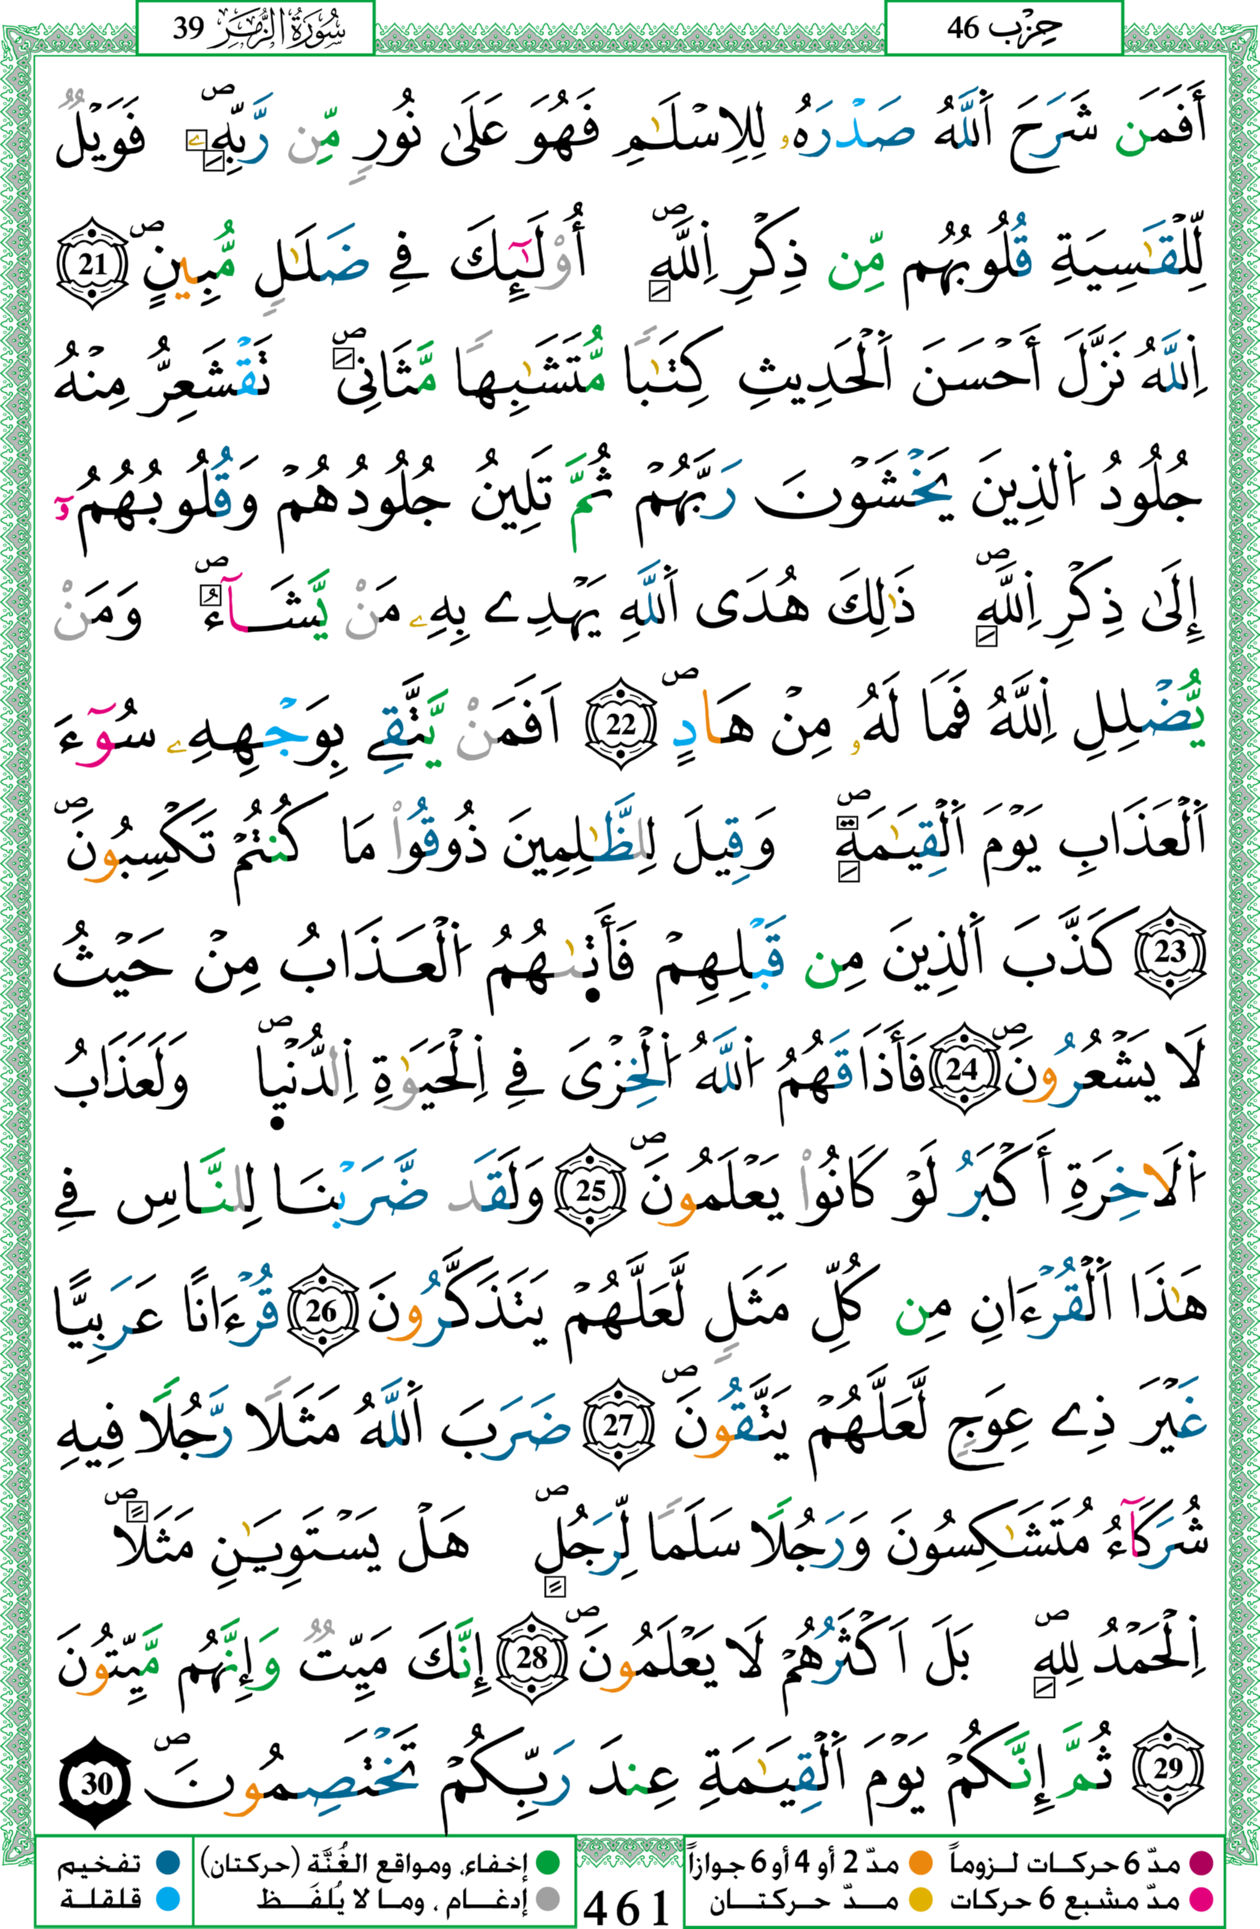 حِزْب 46
سُورَةُ الزُّمَرِ 39
أَفَمَن شَرَحَ اَ۬للَّهُ صَدْرَهُۥ لِلِاسْلَٰمِ فَهُوَ عَلَىٰ نُورٖ مِّن رَّبِّهِۦۖ فَوَيْلٞ
لِّلْقَٰسِيَةِ قُلُوبُهُم مِّن ذِكْرِ اِ۬للَّهِۖ أُوْلَٰٓئِكَ فِے ضَلَٰلٖ مُّبِينٍۖ 21
اِ۬للَّهُ نَزَّلَ أَحْسَنَ اَ۬لْحَدِيثِ كِتَٰباٗ مُّتَشَٰبِهاٗ مَّثَانِيَۖ تَقْشَعِرُّ مِنْهُ
جُلُودُ اُ۬لذِينَ يَخْشَوْنَ رَبَّهُمْ ثُمَّ تَلِينُ جُلُودُهُمْ وَقُلُوبُهُمُۥٓ
إِلَىٰ ذِكْرِ اِ۬للَّهِۖ ذَٰلِكَ هُدَى اَ۬للَّهِ يَهْدِے بِهِۦ مَنْ يَّشَآءُۖ وَمَنْ
يُّضْلِلِ اِ۬للَّهُ فَمَا لَهُۥ مِنْ هَادٍۖ 22 اَفَمَنْ يَّتَّقِے بِوَجْهِهِۦ سُوٓءَ
اَ۬لْعَذَابِ يَوْمَ اَ۬لْقِيَٰمَةِۖ وَقِيلَ لِلظَّٰلِمِينَ ذُوقُواْ مَا كُنتُمْ تَكْسِبُونَۖ
23 كَذَّبَ اَ۬لذِينَ مِن قَبْلِهِمْ فَأَت۪ىٰهُمُ اُ۬لْعَذَابُ مِنْ حَيْثُ
لَا يَشْعُرُونَۖ 24 فَأَذَاقَهُمُ اُ۬للَّهُ اُ۬لْخِزْيَ فِے اِ۬لْحَيَوٰةِ اِ۬لدُّنْي۪اۖ وَلَعَذَابُ
اُ۬لَاخِرَةِ أَكْبَرُ لَوْ كَانُواْ يَعْلَمُونَۖ 25 وَلَقَد ضَّرَبْنَا لِلنَّاسِ فِے
هَٰذَا اَ۬لْقُرْءَانِ مِن كُلِّ مَثَلٖ لَّعَلَّهُمْ يَتَذَكَّرُونَ 26 قُرْءَاناً عَرَبِيّاً
غَيْرَ ذِے عِوَجٖ لَّعَلَّهُمْ يَتَّقُونَۖ 27 ضَرَبَ اَ۬للَّهُ مَثَلاٗ رَّجُلاٗ فِيهِ
شُرَكَآءُ مُتَشَٰكِسُونَ وَرَجُلاٗ سَلَماٗ لِّرَجُلٍۖ هَلْ يَسْتَوِيَٰنِ مَثَلاًۖ
اِ۬لْحَمْدُ لِلهِۖ بَلَ اَكْثَرُهُمْ لَا يَعْلَمُونَۖ 28 إِنَّكَ مَيِّتٞ وَإِنَّهُم مَّيِّتُونَ
29 ثُمَّ إِنَّكُمْ يَوْمَ اَ۬لْقِيَٰمَةِ عِندَ رَبِّكُمْ تَخْتَصِمُونَۖ 30
مدّ 6 حركات لـزوماً
مدّ 2 أو 4 أو 6 جوازاً
إخفاء، ومواقع الغُنَّة (حركتان)
تفخيم
مدّ مشبع 6 حركات
مــدّ حـركتـان
إدغـام ، ومـا لا يُلفَـظ
قلقلة
461